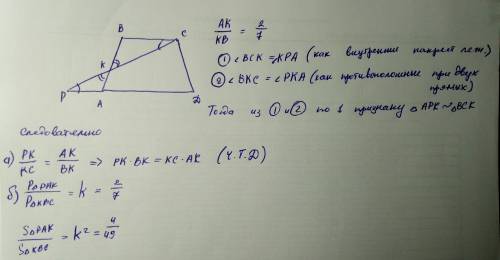 B
C
K
P
A
D
AK/KB = 2/7
① ∠BCK = ∠KPA (как внутренние накрест леж.)
② ∠BKC = ∠PKA (как противоположные при двух
прямых)
Тогда из ① и ② по 1 признаку △APK ~ △BCK
следовательно
а) PK/KC = AK/BK => PK · BK = KC · AK (Ч.Т.Д)
б) P△PAK/P△KBC = k = 2/7
S△PAK/S△KBC = k² = 4/49